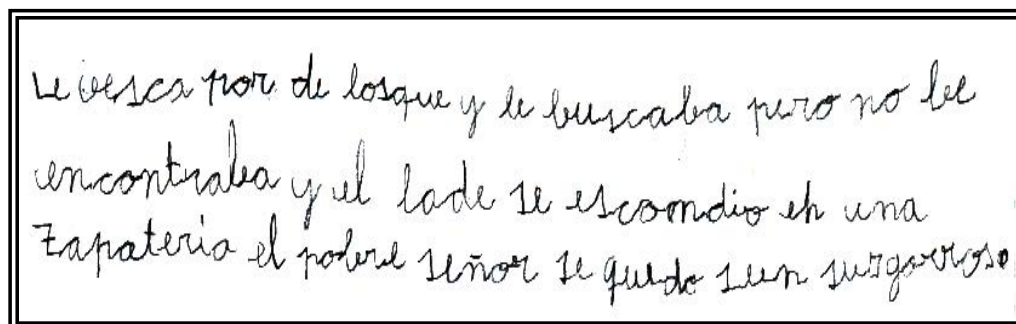 Le vesca por de losque y le buscaba pero no le
encontraba y el lade se escomdio en una
Zapateria el pobre señor se quedo sun